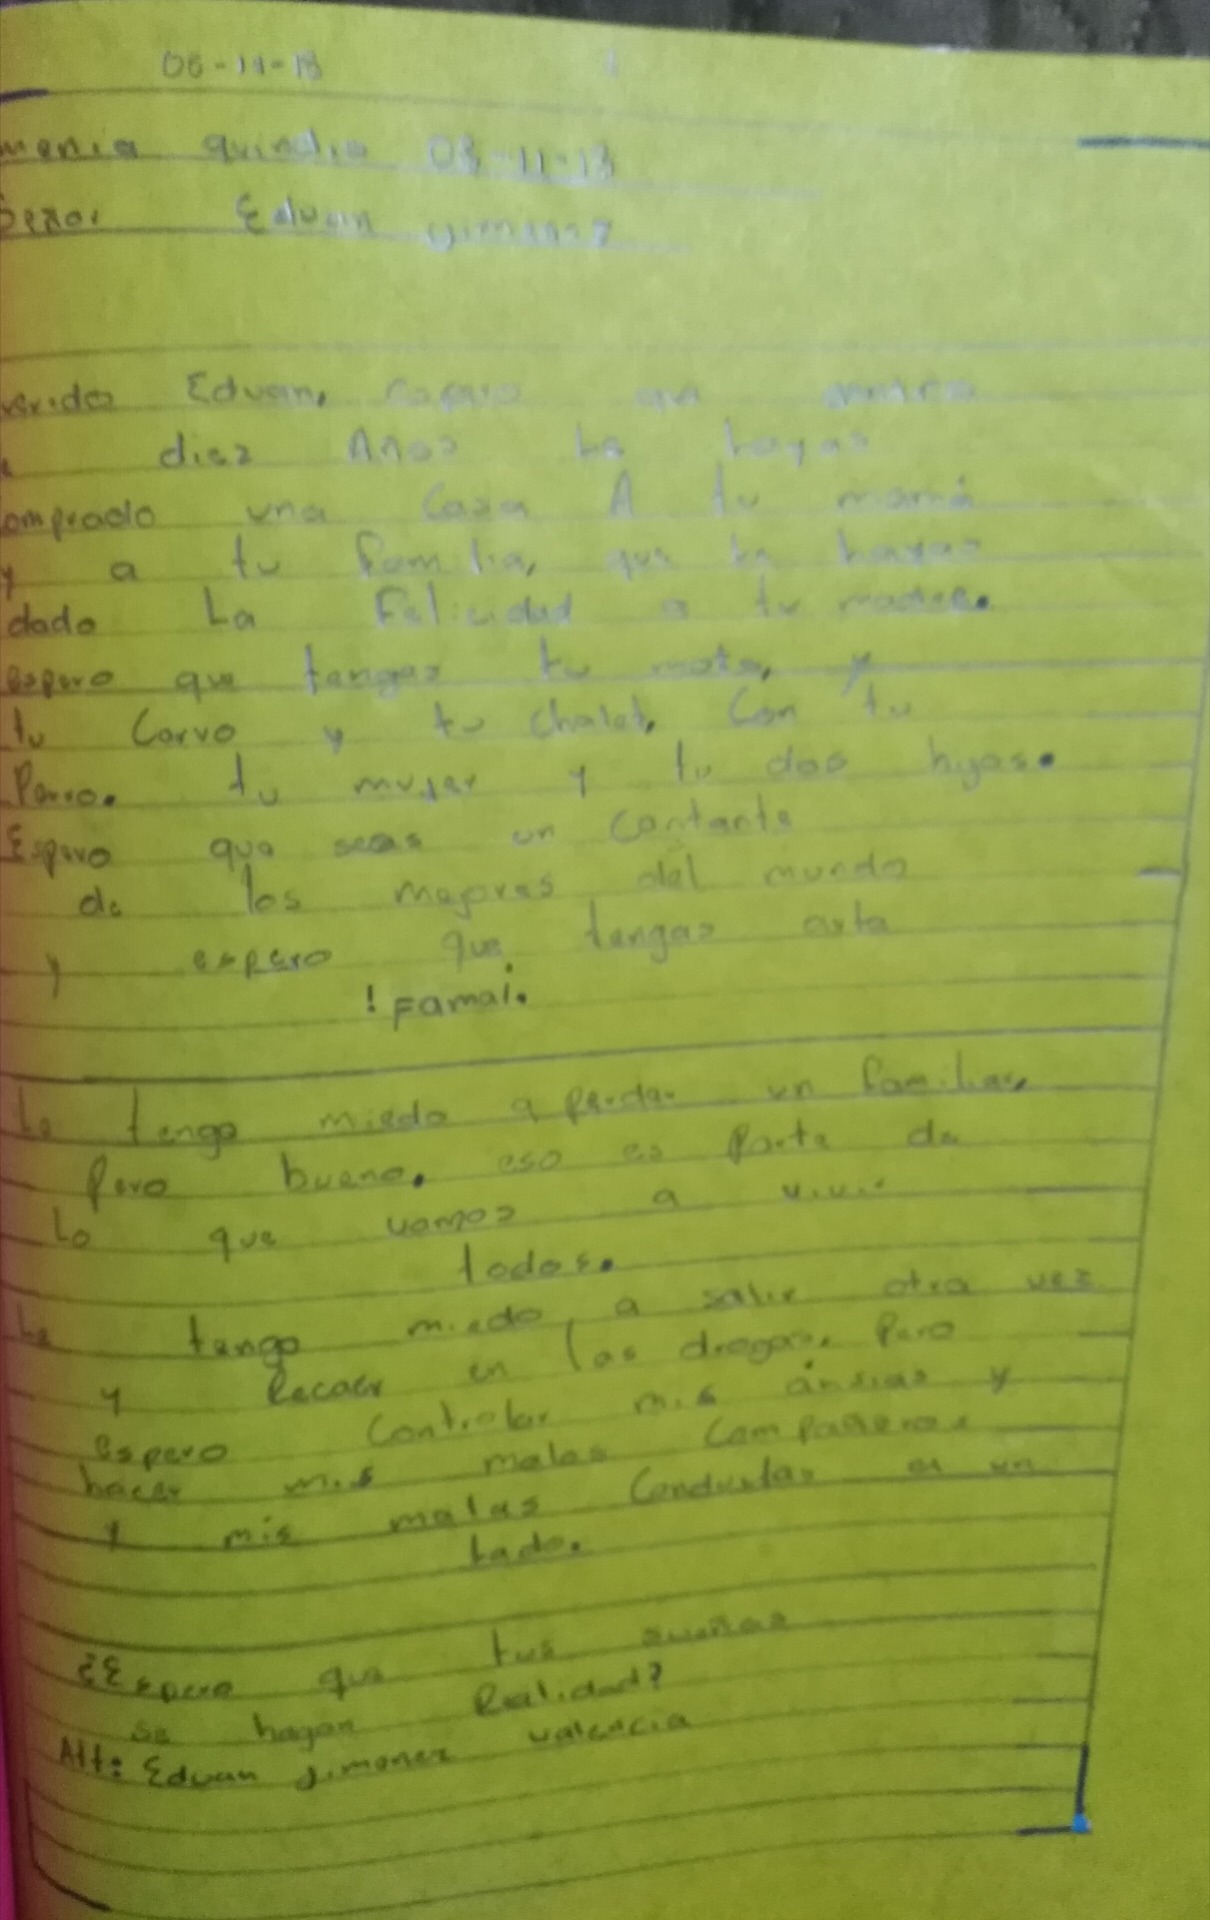 06-11-18
menia quindio 08-11-18
Señor Eduan yimenez
uerido Eduan, espero que dentro
diez Años Le hayas
comprado una Casa A tu mamá
y a tu familia, que le hayas
dado La Felicidad a tu madre.
espero que tengas tu moto, y
tu Carro y tu chalet, Con tu
Perro. tu mujer y tu dos hijos.
Espero que seas un Cantante
de los mejores del mundo
y espero que tengas arta
! Fama¡.
Le tengo miedo a perder un familiar,
Pero bueno. eso es Parte de
Lo que vamos a vivir
todos.
Le tengo miedo a salir otra vez
y Recaer en las drogas. Pero
espero Controlar mis ánsias y
hacer mis malos Compañeros
y mis malas Conductas a un
Lado.
¿Espero que tus sueños
se hagan Realidad?
Att: Eduan Jimenez valencia